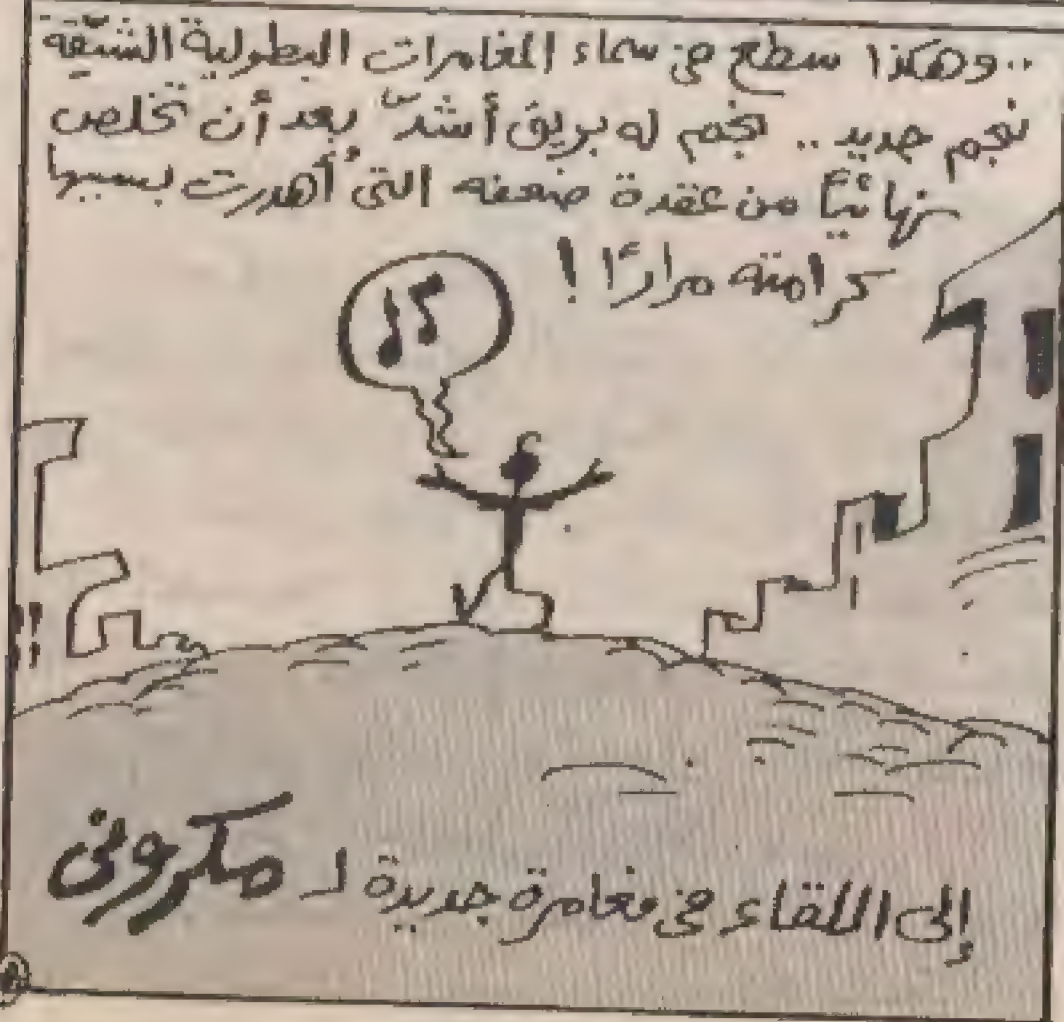 ..وهكذا سطع في سماء المغامرات البطولية الشيّقة
نجم جديد .. نجم له بريق أشدّ بعد أن تخلص
نهائيّاً من عقدة ضعفه التي أُهدرت بسببها
كرامته مرارًا !
إلى اللقاء في مغامرة جديدة لـ مكروني